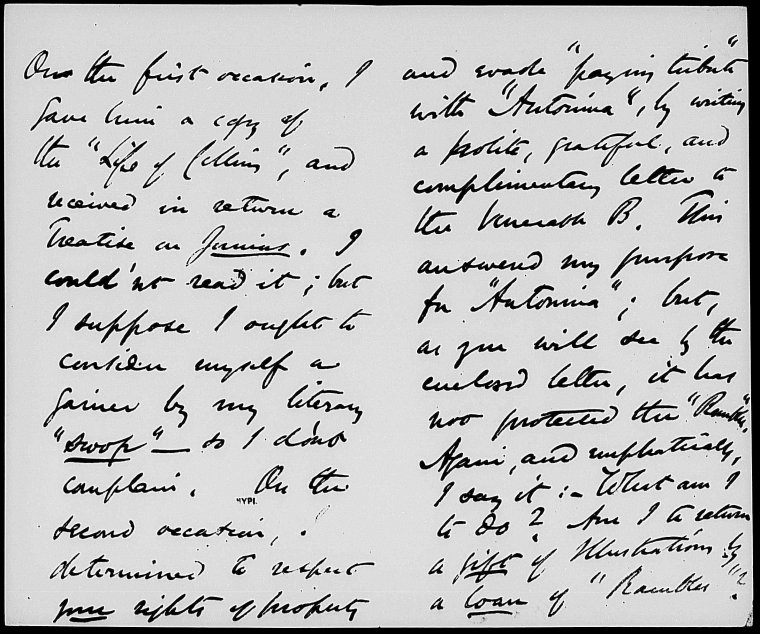 On the first occasion, I
gave him a copy of
the "Life of Collins", and
received in return a
Treatise on Junius. I
could'nt read it; but
I suppose I ought to
consider myself a
gainer by my literary
"swop" — so I dont
complain. On the
second occasion, I
determined to respect
your rights of property
and evade "paying tribute"
with "Antonina", by writing
a polite, grateful, and
complimentary letter to
the venerable B. This
answered my purpose
for "Antonina"; but,
as you will see by the
enclosed letter, it has
not protected the "Rambles".
Again, and emphatically,
I say it :– What am I
to do? Am I to return
a gift of Illustrations by
a loan of "Rambles"?